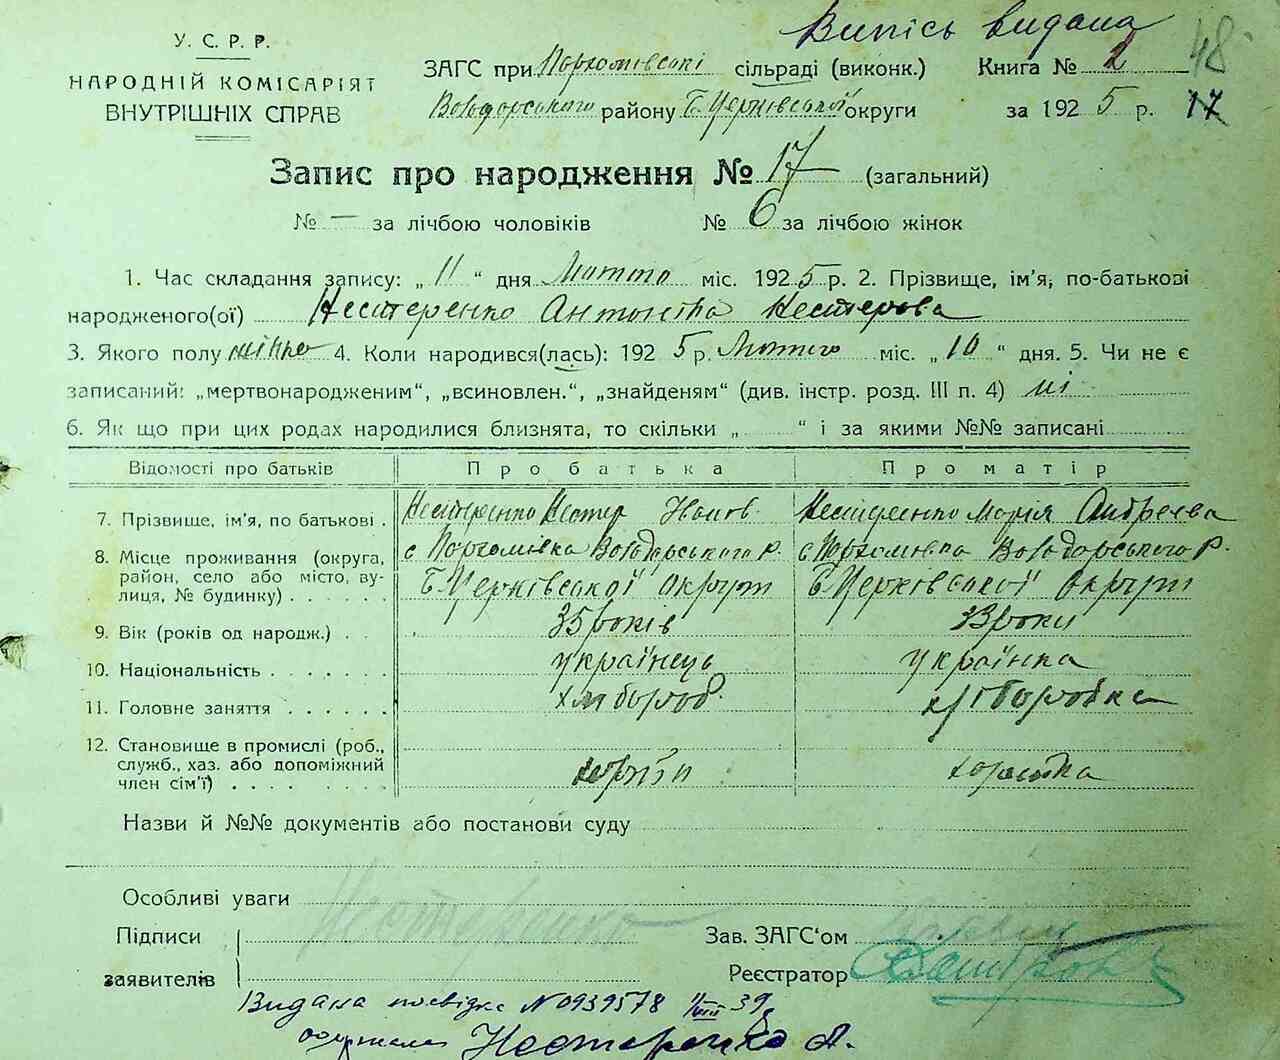 Випісь видана 48
У. С. Р. Р.
НАРОДНІЙ КОМІСАРІЯТ
ВНУТРІШНІХ СПРАВ
ЗАГС при Пархомівські сільраді (виконк.) Книга № 2
Володарського району Б. Церківської округи за 1925 р. 17
Запис про народження № 17 (загальний)
№ — за лічбою чоловіків № 6 за лічбою жінок
1. Час складання запису: „ 11 “ дня Лютого міс. 1925 р. 2. Прізвище, ім'я, по-батькові
народженого(ої) Нестеренко Антоніна Нестерова
3. Якого полу жіноч 4. Коли народився(лась): 1925 р. Лютого міс. „ 10 “ дня. 5. Чи не є
записаний: „мертвонародженим“, „всиновлен.“, „знайденям“ (див. інстр. розд. III п. 4) ні
6. Як що при цих родах народилися близнята, то скільки „ “ і за якими №№ записані
Відомості про батьків Про батька Про матір
7. Прізвище, ім'я, по батькові . Нестеренко Нестер Іванов. Нестеренко Марія Андреєва
8. Місце проживання (округа, район, село або місто, вулиця, № будинку) с Пархомівка Володарського р. с. Пархомівка Володарського р.
Б Церківської округи Б Церківської округи
9. Вік (років од народж.) . . 35 років 33 роки
10. Національність . . . . . . українець українка
11. Головне заняття . . . . . . хлібороб. хліборобка
12. Становище в промислі (роб., служб., хаз. або допоміжний член сім'ї) . . . . . . .
Назви й №№ документів або постанови суду
Особливі уваги
Нестеренко
Підписи
заявителів
Зав. ЗАГС'ом
Реєстратор
Видана посвідка № 0939578 39
Нестеренко А.